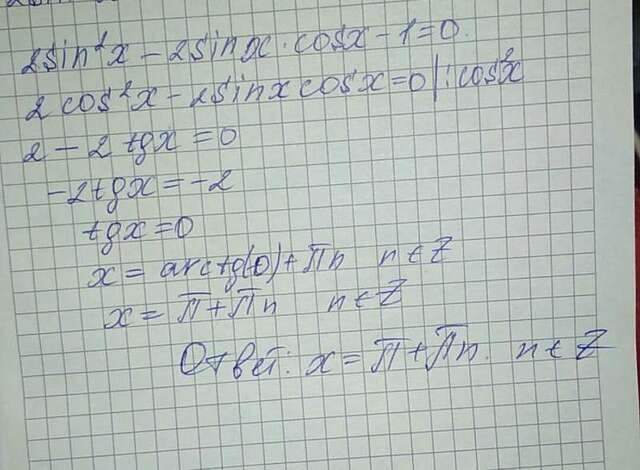 2sin²x - 2sinx · cosx - 1 = 0.
2cos²x - 2sinx cosx = 0 | : cos²x
2 - 2tgx = 0
-2tgx = -2
tgx = 0
x = arctg(0) + Πn n ∈ Z
x = Π + Πn n ∈ Z
Ответ: x = Π + Πn. n ∈ Z